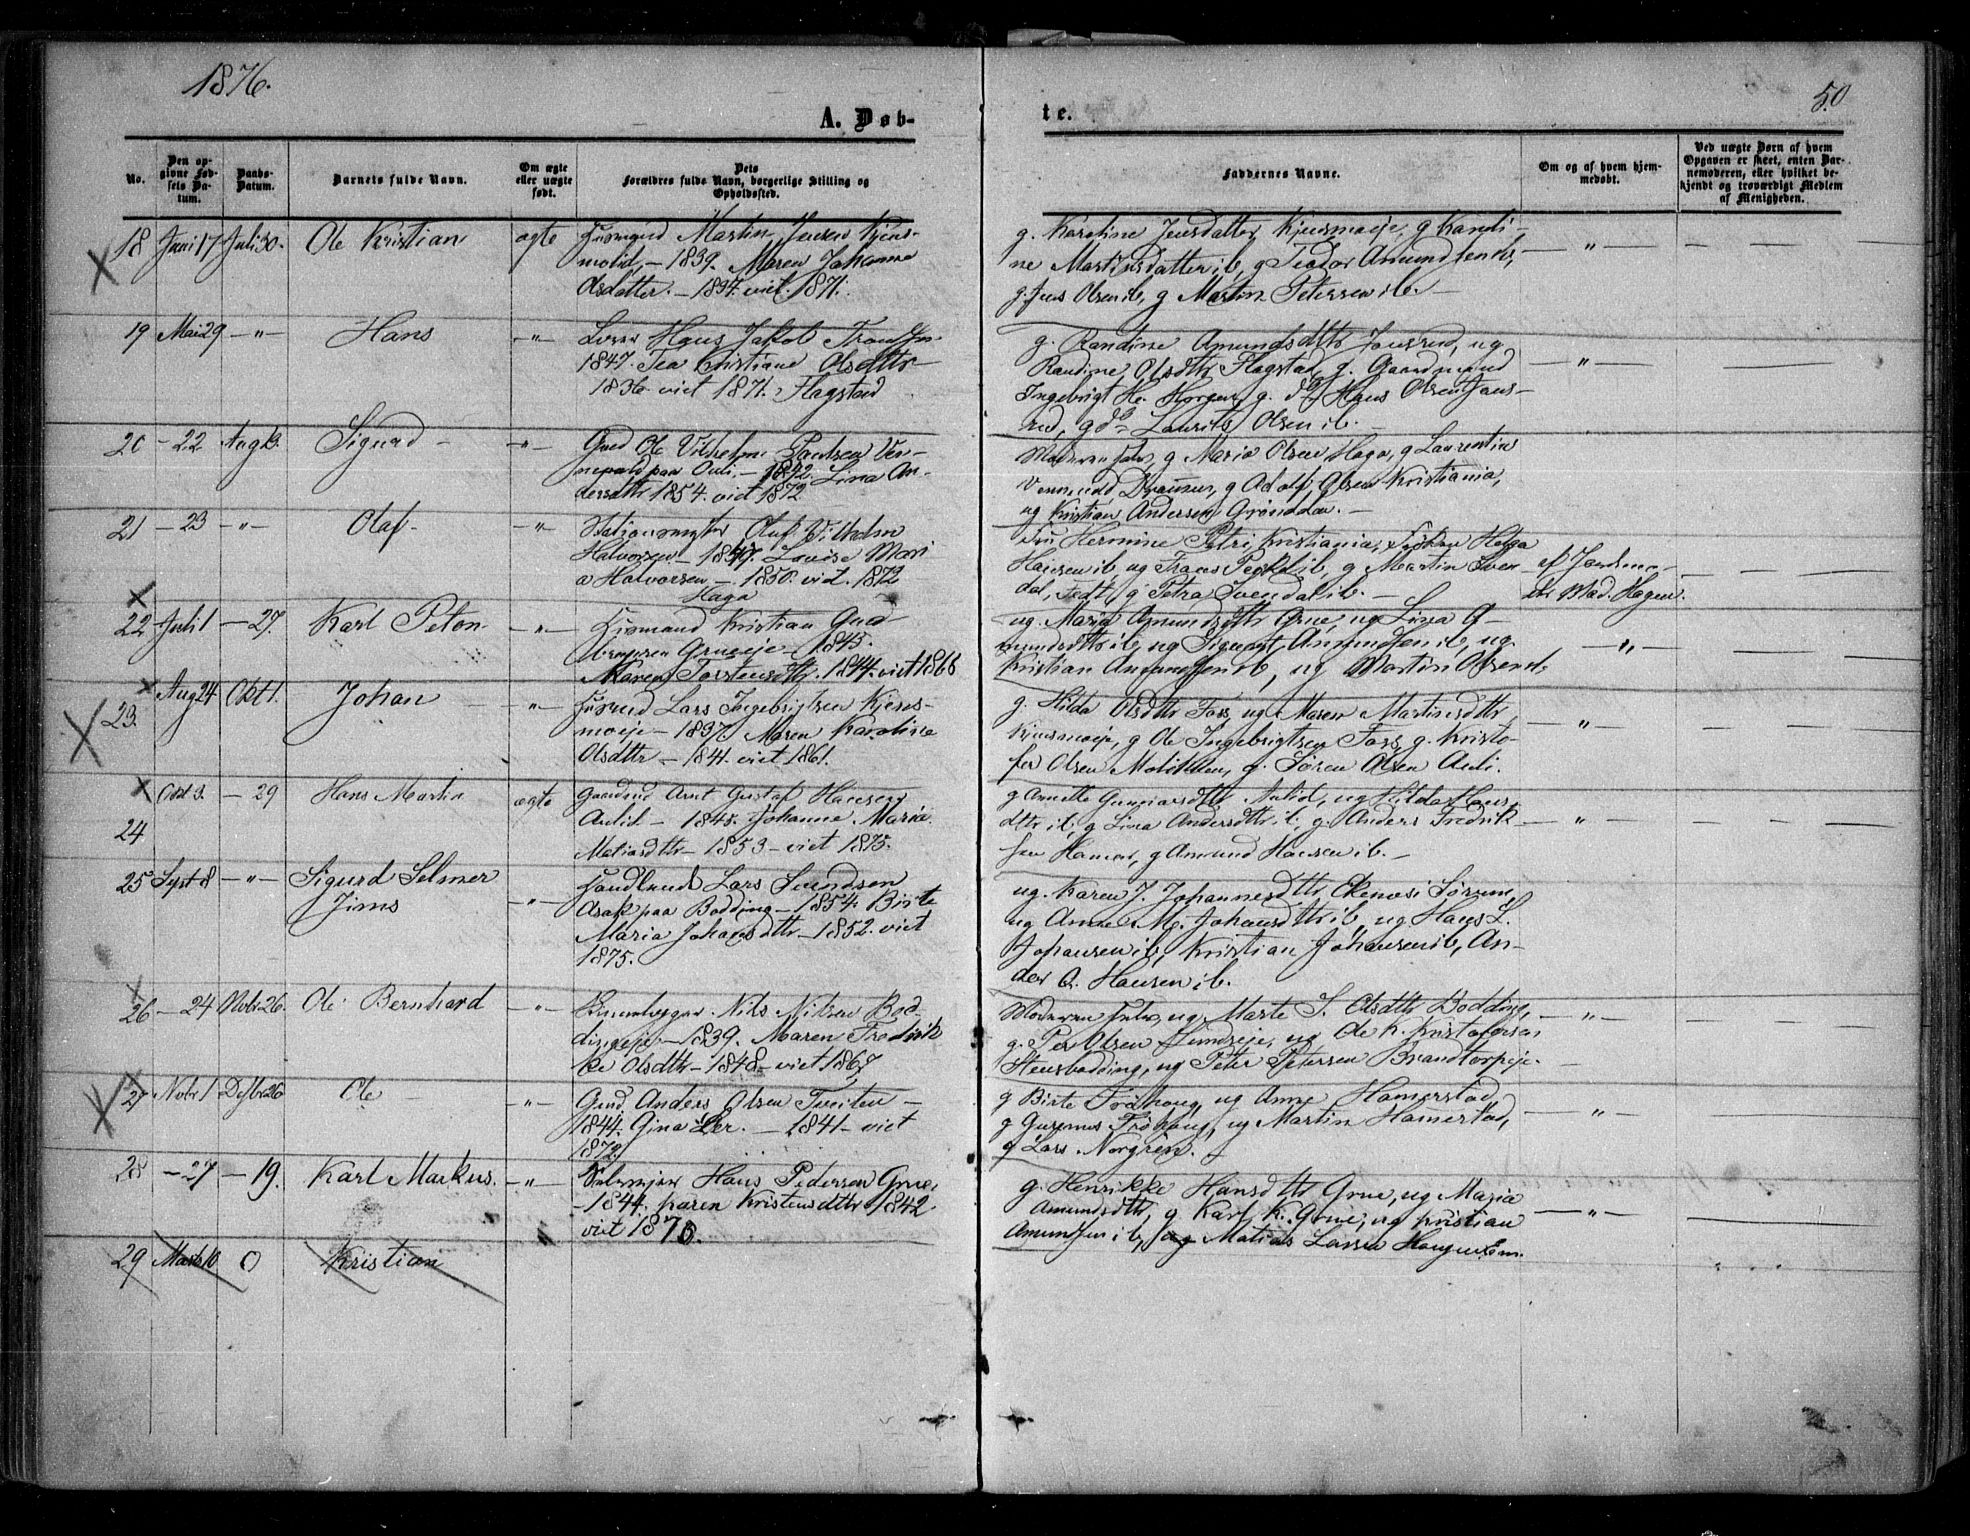 1876.
50
A. Døb-
te.
No.
Den op-
givne Fød-
sels Da-
tum.
Daabs-
Datum.
Barnets fulde Navn.
Om ægte
eller uægte
født.
Dets
Forældres fulde Navn, borgerlige Stilling og
Opholdssted.
Faddernes Navne.
Om og af hvem hjem-
medøbt.
Ved uægte Børn af hvem
Opgaven er skeet, enten Bar-
nemoderen, eller hvilket be-
kjendt og troværdigt Medlem
af Menigheden.
18 Juni 17 Juli 30. Ole Kristian ægte Husmand Martin Jensen Kjens-
molid, – 1839. Maren Johanne
Olsdatter. – 1834. viet. 1871.
g. Karoline Jensdatter Kjusmoeje, g Kandi-
ne Martinsdatter ib, g Teodor Amundsen ib,
g. Jens Olsen ib, g Martin Petersen ib. –
19 Mai 29 – " – Hans – " – Hans Jakob
1847. Tea Kristiane Olsdttr
1836 viet 1871. Flagstad
g. Randine Amundsdttr Jonsrud, ug
Randine Olsdttr Flagstad, g. Gaardmand
Ingebrigt He. Horgen, g. do Hans Olsen Jons-
rud, g do Laurits Olsen ib. –
20 – 22 Aug Sigurd – – " – Gmd Ole Vilhelm Paulsen Ven-
paa Auli. – 1842. Lina An-
dersdttr 1854. viet 1872
Moderen selv, g Maria Olsen Haga, g Laurentius
Vennevold Drausen, g Adolf Olsen Kristiania,
ug Kristian Andersen Grønddalen. –
21 – 23 – " – Olaf – – " – Stationsmester Oluf Vilhelm
Halvorsen – 1847. Lovise Mari
a Halvorsen – 1850. vid. 1872
Haga
Fru Hermine Petri Kristiania, Frøken Helga
Hansen ib ug Frans ib, g Martin Sven-
dal, Fedt, g Petra Svendal ib. –
af Jordmo-
der Mad. Hagen.
22 Juli 1 – 27. Karl Peton – " – Husmand Kristian Gud
brensen Grueeje – 1845.
Maren Torstensdttr. 1844. viet 1866
ug. Maria Amundsdttr Grue, ug Lina A-
mundsdttr ib, ug Sigvart Amundsen ib, ug
Kristian Amundsen ib, ug Martin Olsen ib.
23. Aug 24 Okt 1. Johan – " – Husmd Lars Ingebrigtsen Kjens-
moeje – 1837. Maren Karoline
Olsdttr – 1841. viet 1861.
g. Hilda Olsdttr Foss, ug Maren Martinsdttr
Kjusmoeje, g Ole Ingebrigtsen Foss, g. Kristo-
fer Olsen Moliteien, g. Søren Olsen Auli.
24 Okt 3. – 29 Hans Martin ægte Gaardmd Arnt Gustaf Hansen
Aulid – 1845. Johanne Maria
Matiasdttr – 1853 – viet 1875.
g Annette Gunnarsdttr Aulid, ug Hilda Hans-
dttr ib, g Lina Andersdttr ib, g. Anders Fredrik-
sen Hamar, g Amund Hansen ib. –
25 Sept 8 – " – Sigurd Selmer
Jims
– " –
Handlende Lars Svendsen
Asak paa Bodding – 1854. Birte
Maria Johansdttr – 1852. viet
1875.
ug. Karen J. Johannesdttr Ekenæsi Sørum,
ug Anne M. Johansdttr ib, ug Hans L.
Johansen ib, Kristian Johansen ib, An-
der A. Hansen ib.
26 – 24 Novbr 26. Ole Bernhard – " – Nils Nilsen Bod-
dingeje – 1839. Maren Fredrik
ke Olsdttr – 1848 – viet 1867
Moderen selv, ug Marte S. Olsdttr Bodding,
g. Per Olsen Sundseje, ug Ole K. Kristofersen
Stensbodding, ug Peter Petersen Brandtorpeje.
27 Novbr 1 Desbr 26 Ole – " – Gmd. Anders Olsen Tveiten –
1844. Gina Ler. – 1841 – viet
1872
g Birte Frøhaug, ug Anne Hamerstad,
g Gusennus Frøhaug, ug Martin Hamerstad,
g Lars Norgren.
28 – 27 – 19. Karl Markus. – " – Hans Pedersen Grue,
– 1844. Karen Kristensdttr 1842.
viet 1870.
g. Henrikke Hansdttr Grue, ug Maria
Amundsdttr, g Karl K. Grue, ug Kristian
Amundsen ib, ug Matias Larsen Haugeseem.
29 Marts 10 0 Kristian